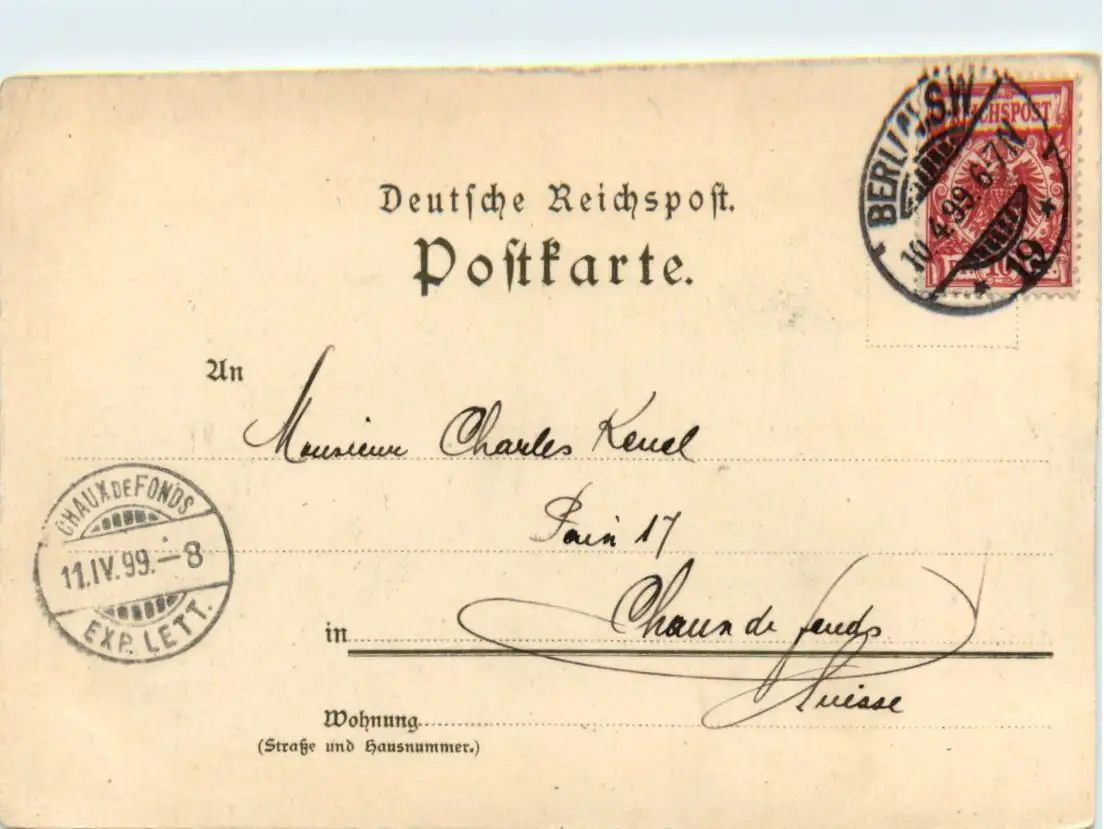 Deutsche Reichspost.
Postkarte.
BERLIN, S.W
10.4.99. 6-7N
* 19 *
REICHSPOST
10
An
Monsieur Charles
17
CHAUX DE FONDS
11.IV.99.–8
EXP. LETT.
in
Chaux de fonds
Suisse
Wohnung
(Straße und Hausnummer.)